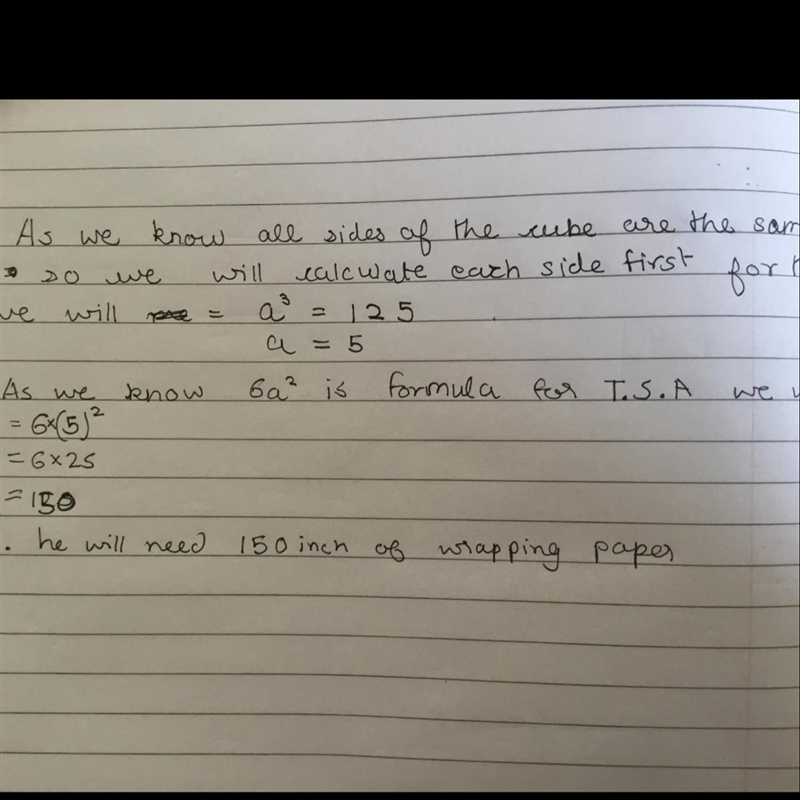 As we know all sides of the cube are the sam
so we will calculate each side first for
we will = a³ = 125
a = 5
As we know 6a² is formula for T.S.A we
= 6×(5)²
= 6×25
= 150
. he will need 150 inch of wrapping paper